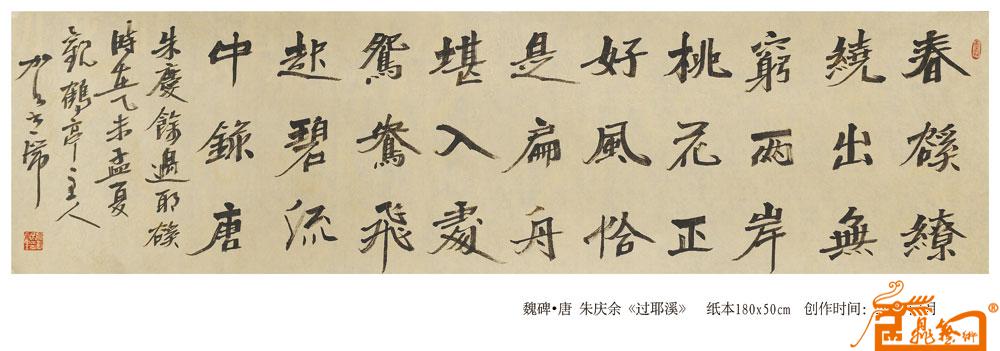 春磎繚
繞出無
窮兩岸
桃花正
好風恰
是扁舟
堪入處
鴛鴦飛
起碧流
中錄唐
朱慶餘過耶磎
時在乙未孟夏
觀鶴亭主人
魏碑•唐 朱庆余《过耶溪》 纸本180x50cm 创作时间：